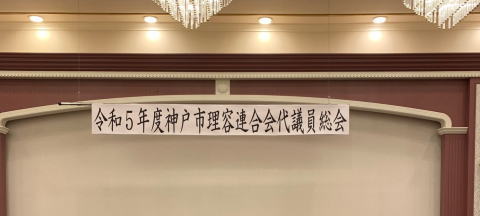 令和５年度神戸市理容連合会代議員総会